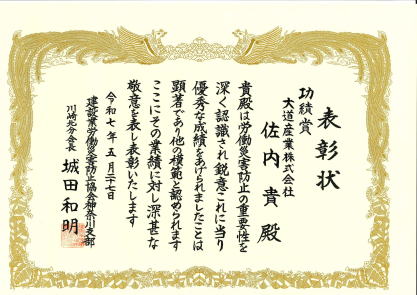 表彰状
功績賞
大道産業株式会社
佐内貴殿
貴殿は労働災害防止の重要性を
深く認識され鋭意これに当り
優秀な成績をあげられましたことは
顕著であり他の模範と認められます
ここにその業績に対し深甚な
敬意を表し表彰いたします
令和七年五月二十七日
建設業労働災害防止協会神奈川支部
川崎北分会長 城田和明